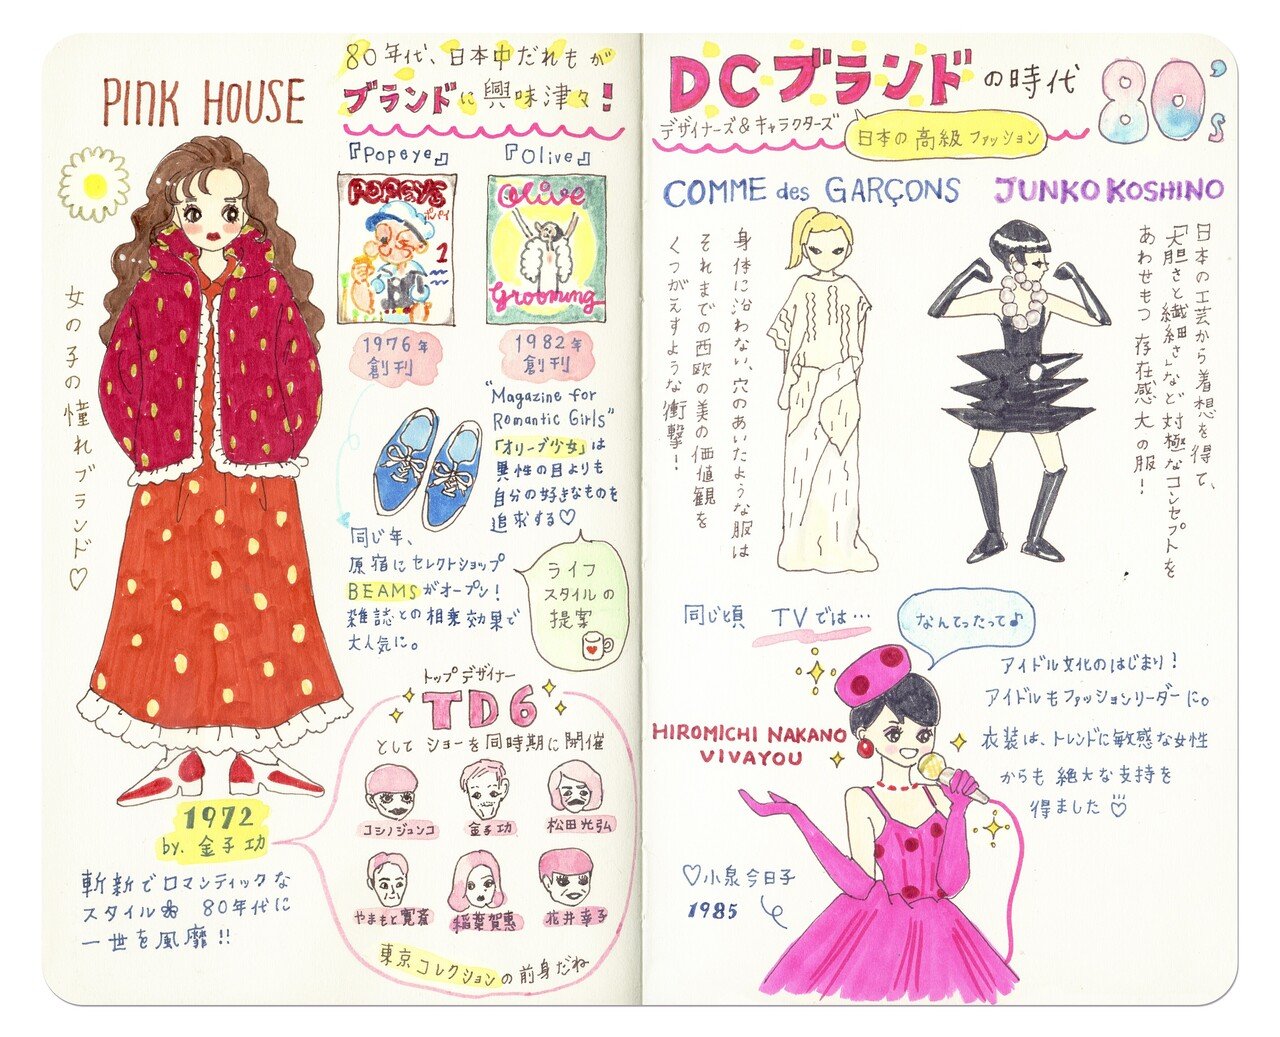 PINK HOUSE
女の子の憧れブランド♡
1972
by. 金子功
斬新でロマンティックな
スタイル 80年代に
一世を風靡!!
80年代、日本中だれもが
ブランドに興味津々!
『Popeye』
POPEYE
ポパイ
1
1976年
創刊
『Olive』
Olive
Grooming
1982年
創刊
"Magazine for
Romantic Girls"
「オリーブ少女」は
異性の目よりも
自分の好きなものを
追求する♡
同じ年、
原宿にセレクトショップ
BEAMSがオープン!
雑誌との相乗効果で
大人気に。
ライフ
スタイルの
提案
トップデザイナー
TD6
として ショーを同時期に開催
コシノジュンコ
金子功
松田光弘
やまもと寛斎
稲葉賀惠
花井幸子
東京コレクションの前身だね
DCブランドの時代
80's
デザイナーズ&キャラクターズ
日本の高級ファッション
COMME des GARÇONS
身体に沿わない、穴のあいたような服は
それまでの西欧の美の価値観を
くつがえすような衝撃!
JUNKO KOSHINO
日本の工芸から着想を得て、
「大胆さと繊細さ」など対極なコンセプトを
あわせもつ 存在感大の服!
同じ頃 TVでは…
なんてったって♪
アイドル文化のはじまり!
アイドルもファッションリーダーに。
衣装は、トレンドに敏感な女性
からも 絶大な支持を
得ました♡
HIROMICHI NAKANO
VIVAYOU
♡小泉今日子
1985